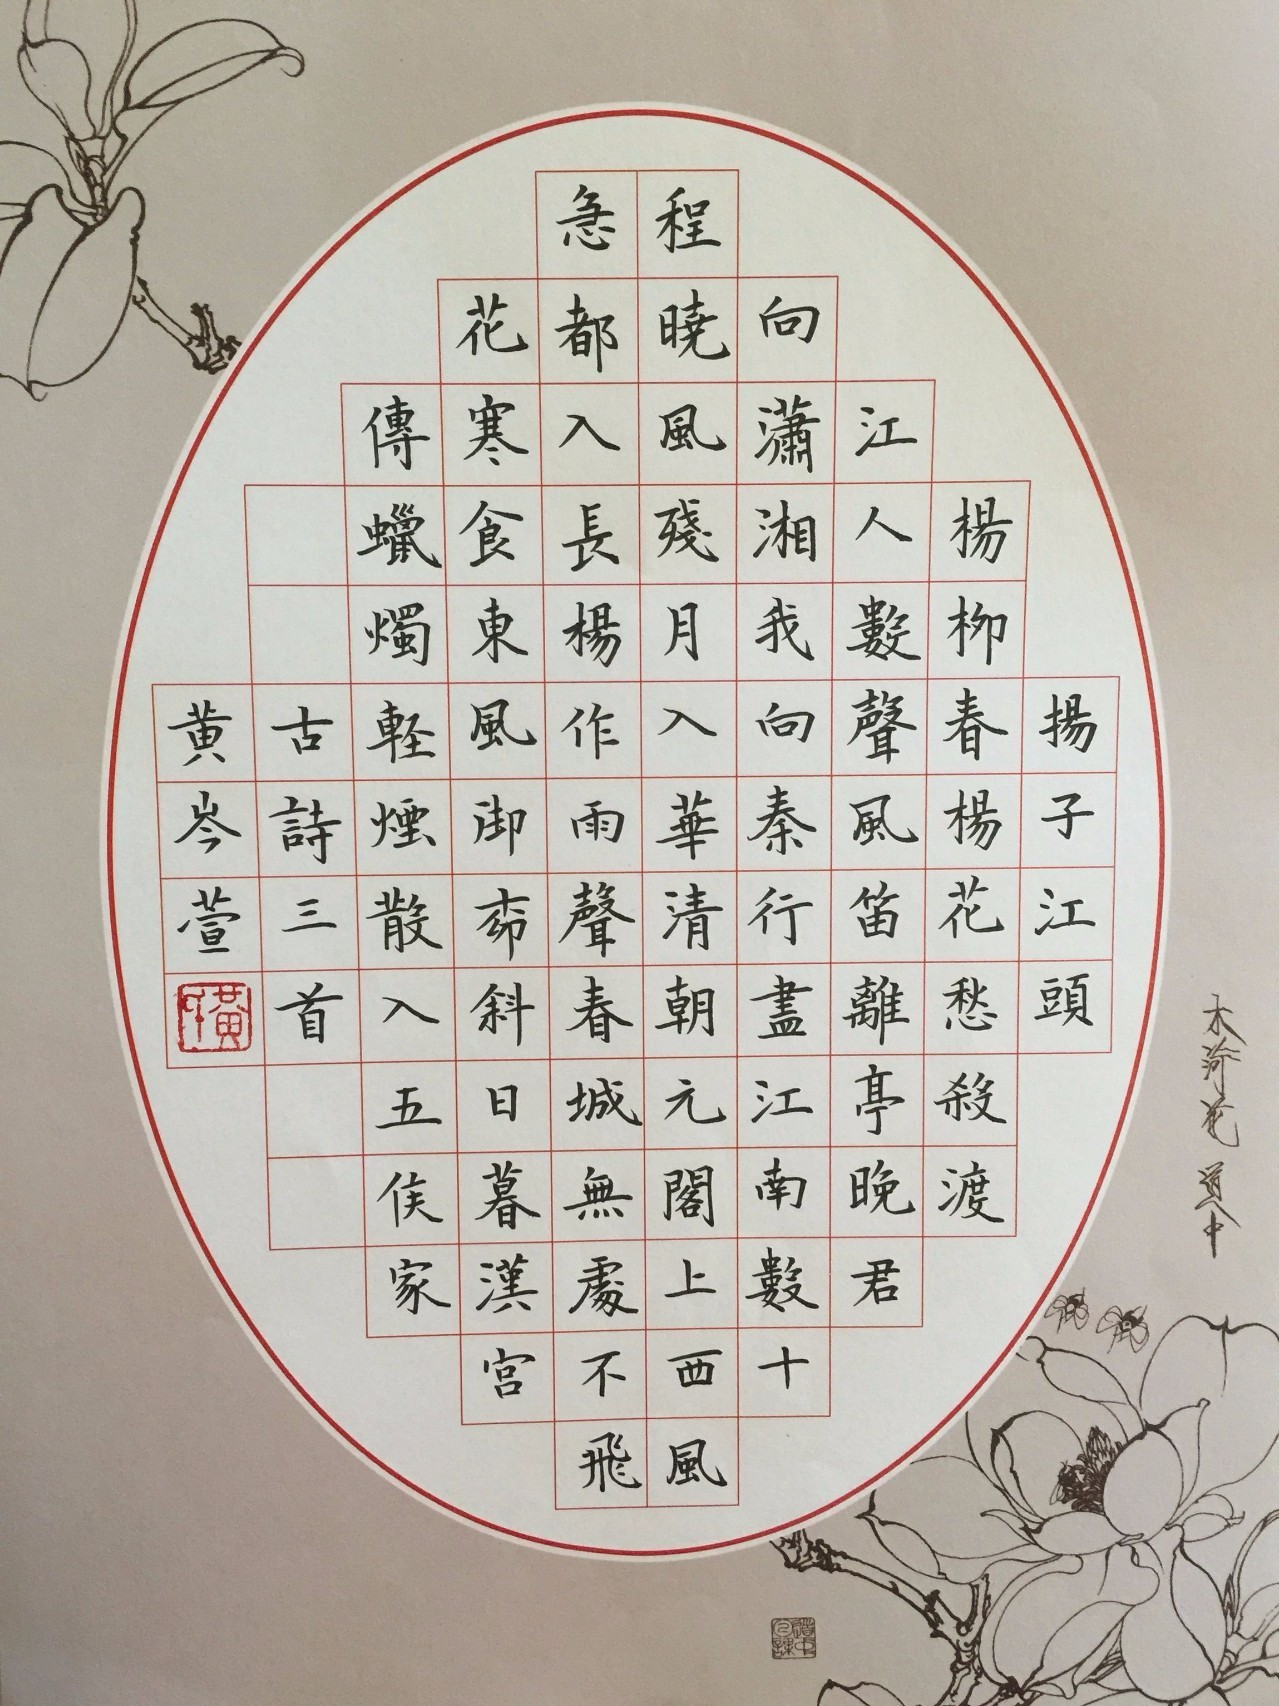 揚子江頭
楊柳春楊花愁殺渡
江人數聲風笛離亭晚君
向瀟湘我向秦行盡江南數十
程曉風殘月入華清朝元閣上西風
急都入長楊作雨聲春城無處不飛
花寒食東風御柳斜日暮漢宮
傳蠟燭輕煙散入五侯家
古詩三首
黄岑萱